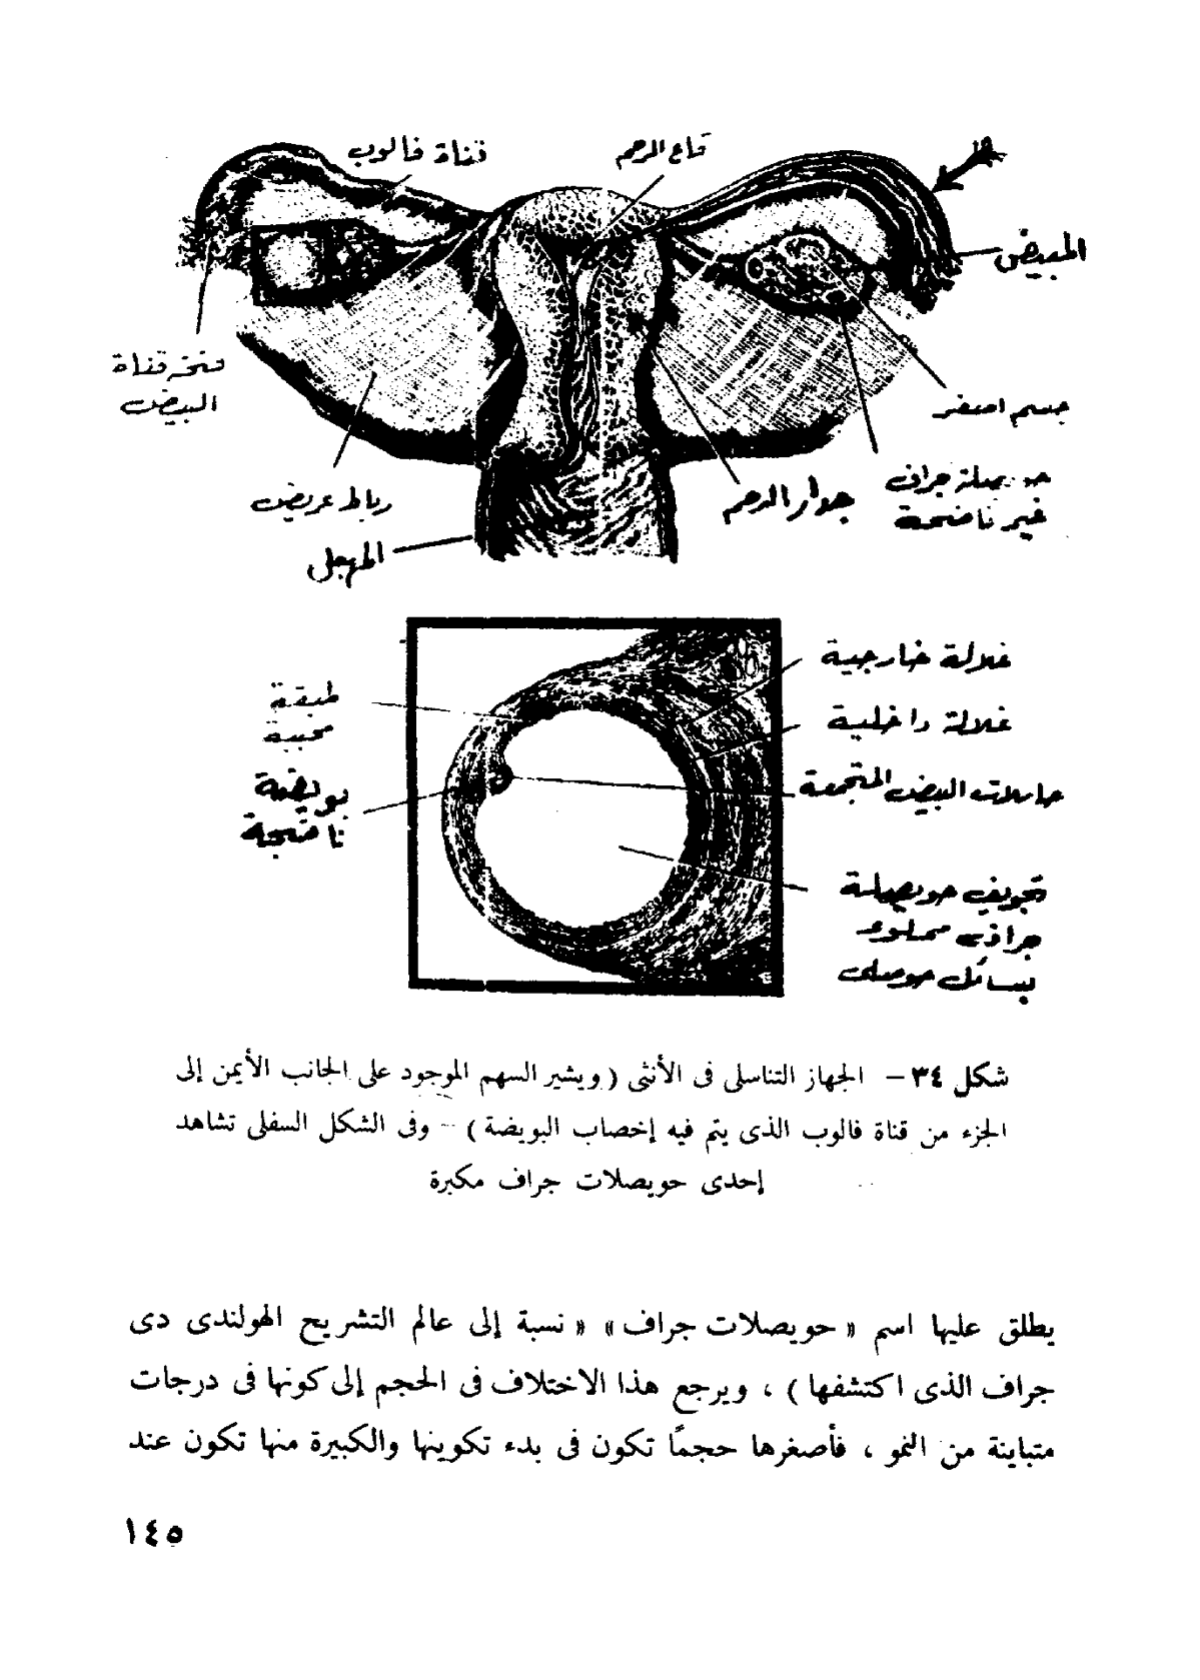 قناة فالوب
قاع الرحم
المبيض
فتحة قناة
البيض
جسم اصفر
حويصلة جراف
غير ناضجة
جدار الرحم
رباط عريض
المهبل
غلالة خارجية
طبقة
محببة
غلالة داخلية
بويضة
ناضجة
حاملات البيض المتجمعة
تجويف حويصلة
جراف مملوء
بسائل حوصلى
شكل ٣٤ – الجهاز التناسلى فى الأنثى ( ويشير السهم الموجود على الجانب الأيمن إلى
الجزء من قناة فالوب الذى يتم فيه إخصاب البويضة ) – وفى الشكل السفلى تشاهد
إحدى حويصلات جراف مكبرة
يطلق عليها اسم « حويصلات جراف » « نسبة إلى عالم التشريح الهولندى دى
جراف الذى اكتشفها ) ، ويرجع هذا الاختلاف فى الحجم إلى كونها فى درجات
متباينة من النمو ، فأصغرها حجمًا تكون فى بدء تكوينها والكبيرة منها تكون عند
١٤٥